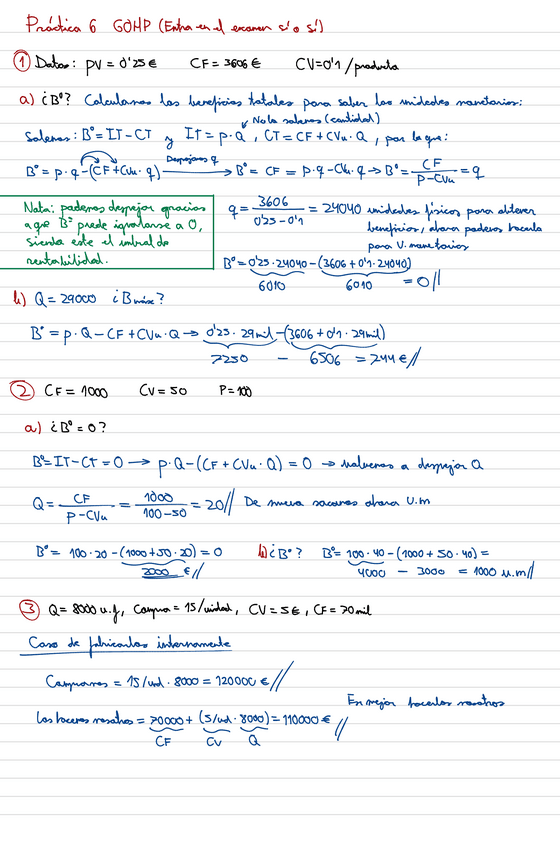 Práctica 6 GOHP (Entra en el examen sí o sí)
① Datos: PV = 0'25 € CF = 3606 € CV = 0'1 / producto
a) ¿Bº? Calculamos los beneficios totales para saber las unidades monetarias:
No la sabemos (cantidad)
Sabemos: Bº = IT - CT y IT = p · Q , CT = CF + CVu · Q , por lo que:
Bº = p · q - (CF + CVu · q) Despejamos q → Bº = CF = p · q - CVu · q → Bº = CF / p - CVu = q
Nota: podemos despejar gracias
a qe Bº puede igualarse a 0,
siendo este el umbral de
rentabilidad.
q = 3606 / 0'25 - 0'1 = 24040 unidades físicas para obtener
beneficios, ahora podemos hacerlo
para U. monetarios
Bº = 0'25 · 24040 - (3606 + 0'1 · 24040)
6010 6010 = 0 //
b) Q = 29000 ¿B máx?
Bº = p · Q - CF + CVu · Q → 0'25 · 29mil - (3606 + 0'1 · 29mil)
7250 - 6506 = 744 € //
② CF = 1000 CV = 50 P = 100
a) ¿Bº = 0?
Bº = IT - CT = 0 → p · Q - (CF + CVu · Q) = 0 → volvemos a despejar Q
Q = CF / P - CVu = 1000 / 100 - 50 = 20 // De nuevo sacamos ahora U.m
Bº = 100 · 20 - (1000 + 50 · 20) = 0 b) ¿Bº? Bº = 100 · 40 - (1000 + 50 · 40) =
2000 € // 4000 - 3000 = 1000 u.m //
③ Q = 8000 u.f, Compra = 15/unidad, CV = 5 €, CF = 70mil
Caso de fabricarlos internamente
Compramos = 15/und · 8000 = 120000 € //
Es mejor hacerlos nosotros
Los hacemos nosotros = 70000 + (5/und · 8000) = 110000 € //
CF CV Q